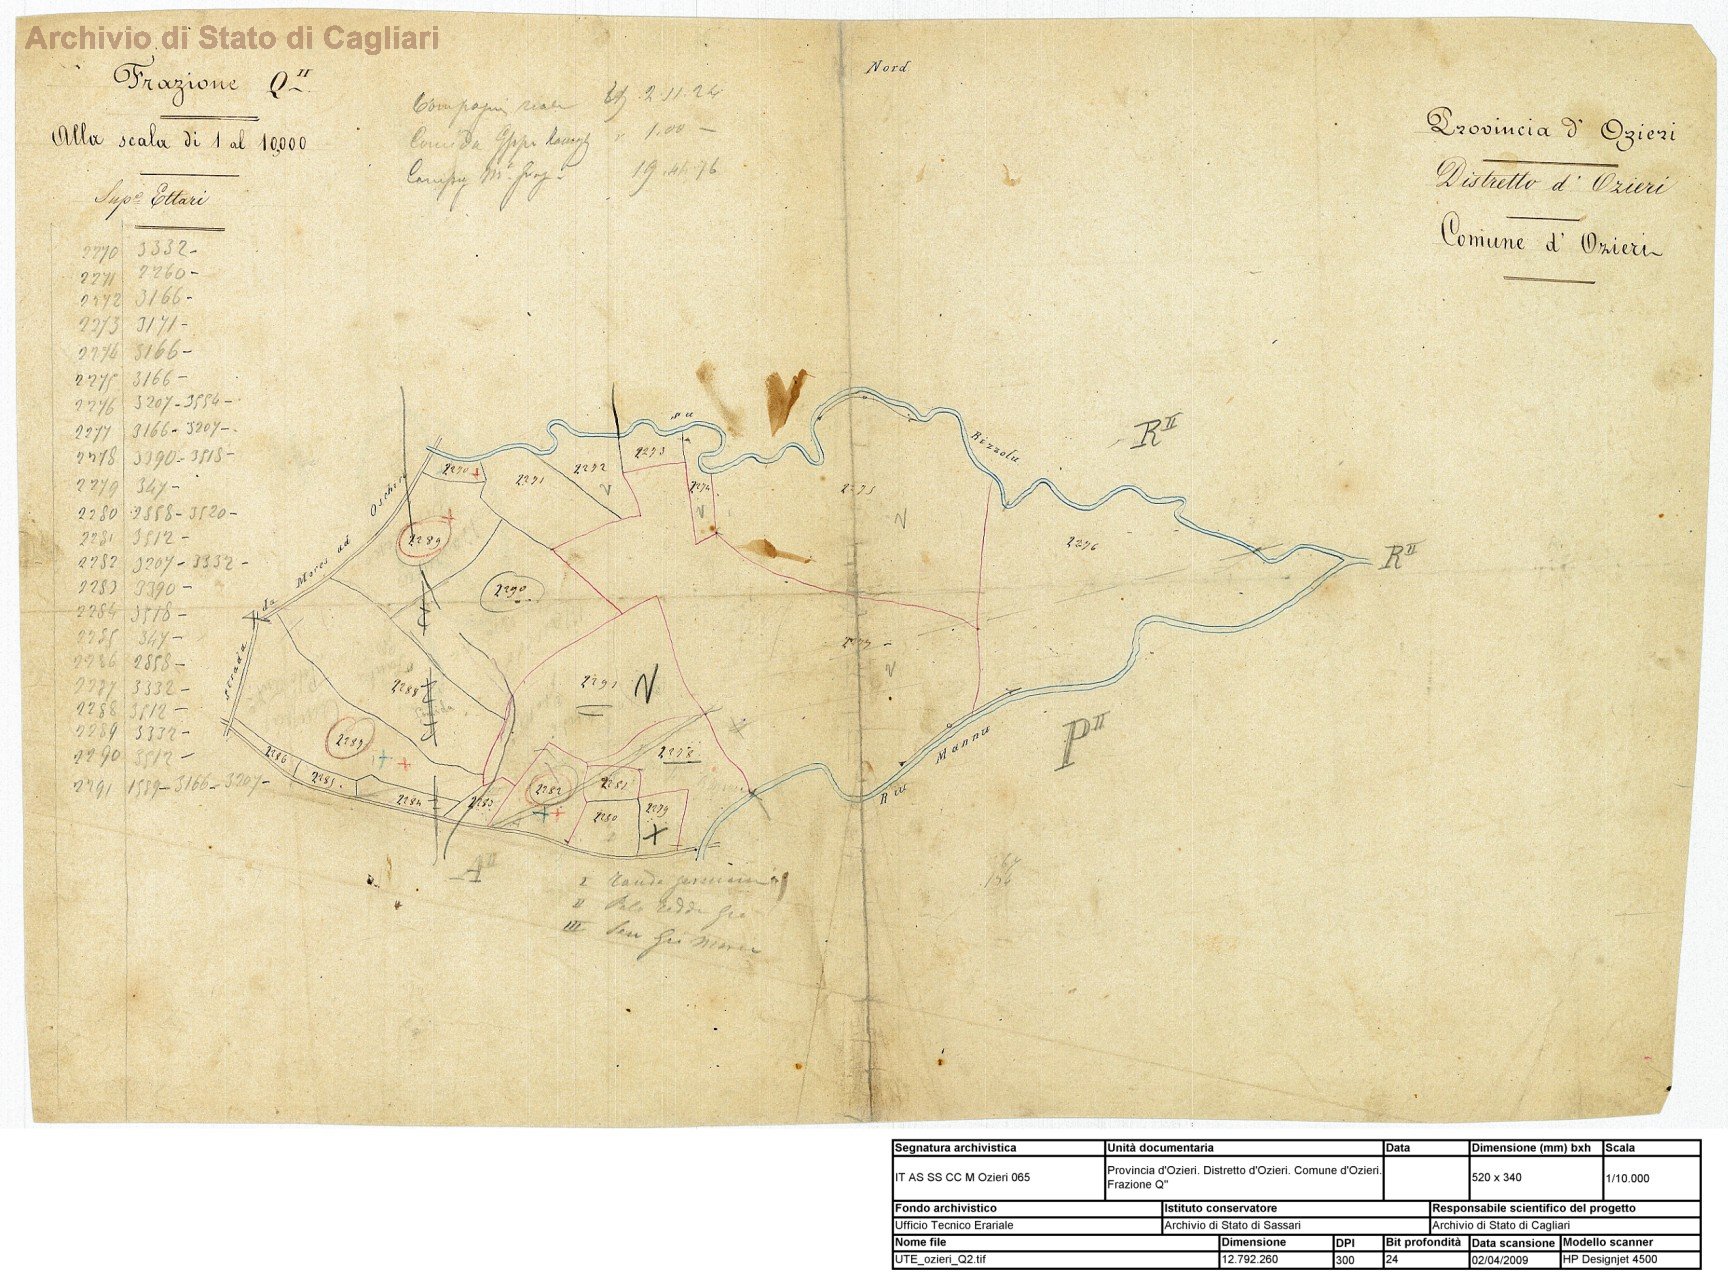 Archivio di Stato di Cagliari
Frazione Q II
Alla scala di 1 al 10,000
Sup.e Ettari
Nord
2.11.24
1.00 —
19.44.76
Provincia d' Ozieri
Distretto d' Ozieri
Comune d' Ozieri
2270 3332 -
2271 2260 -
2272 3166 -
2273 3171 -
2274 3166 -
2275 3166 -
2276 3207 - 3554 -
2277 3166 - 3207 -
2278 3390 - 3518 -
2279 347 -
2280 2858 - 3520 -
2281 3512 -
2282 3207 - 3332 -
2283 3390 -
2284 3518 -
2285 347 -
2286 2858 -
2287 3332 -
2288 3512 -
2289 3332 -
2290 3512 -
2291 1589 - 3166 - 3207 -
su Rizzolu
R II
R II
P II
A II
strada da Mores ad Oschiri
Riu Mannu
2270
2271
2272
2273
2274
2275
2276
2277
2278
2279
2280
2281
2282
2283
2284
2285
2286
2287
2288
2289
2290
2291
I
II
III
Segnatura archivistica Unità documentaria Data Dimensione (mm) bxh Scala
IT AS SS CC M Ozieri 065 Provincia d'Ozieri. Distretto d'Ozieri. Comune d'Ozieri. 520 x 340 1/10.000
Frazione Q"
Fondo archivistico Istituto conservatore Responsabile scientifico del progetto
Ufficio Tecnico Erariale Archivio di Stato di Sassari Archivio di Stato di Cagliari
Nome file Dimensione DPI Bit profondità Data scansione Modello scanner
UTE_ozieri_Q2.tif 12.792.260 300 24 02/04/2009 HP Designjet 4500